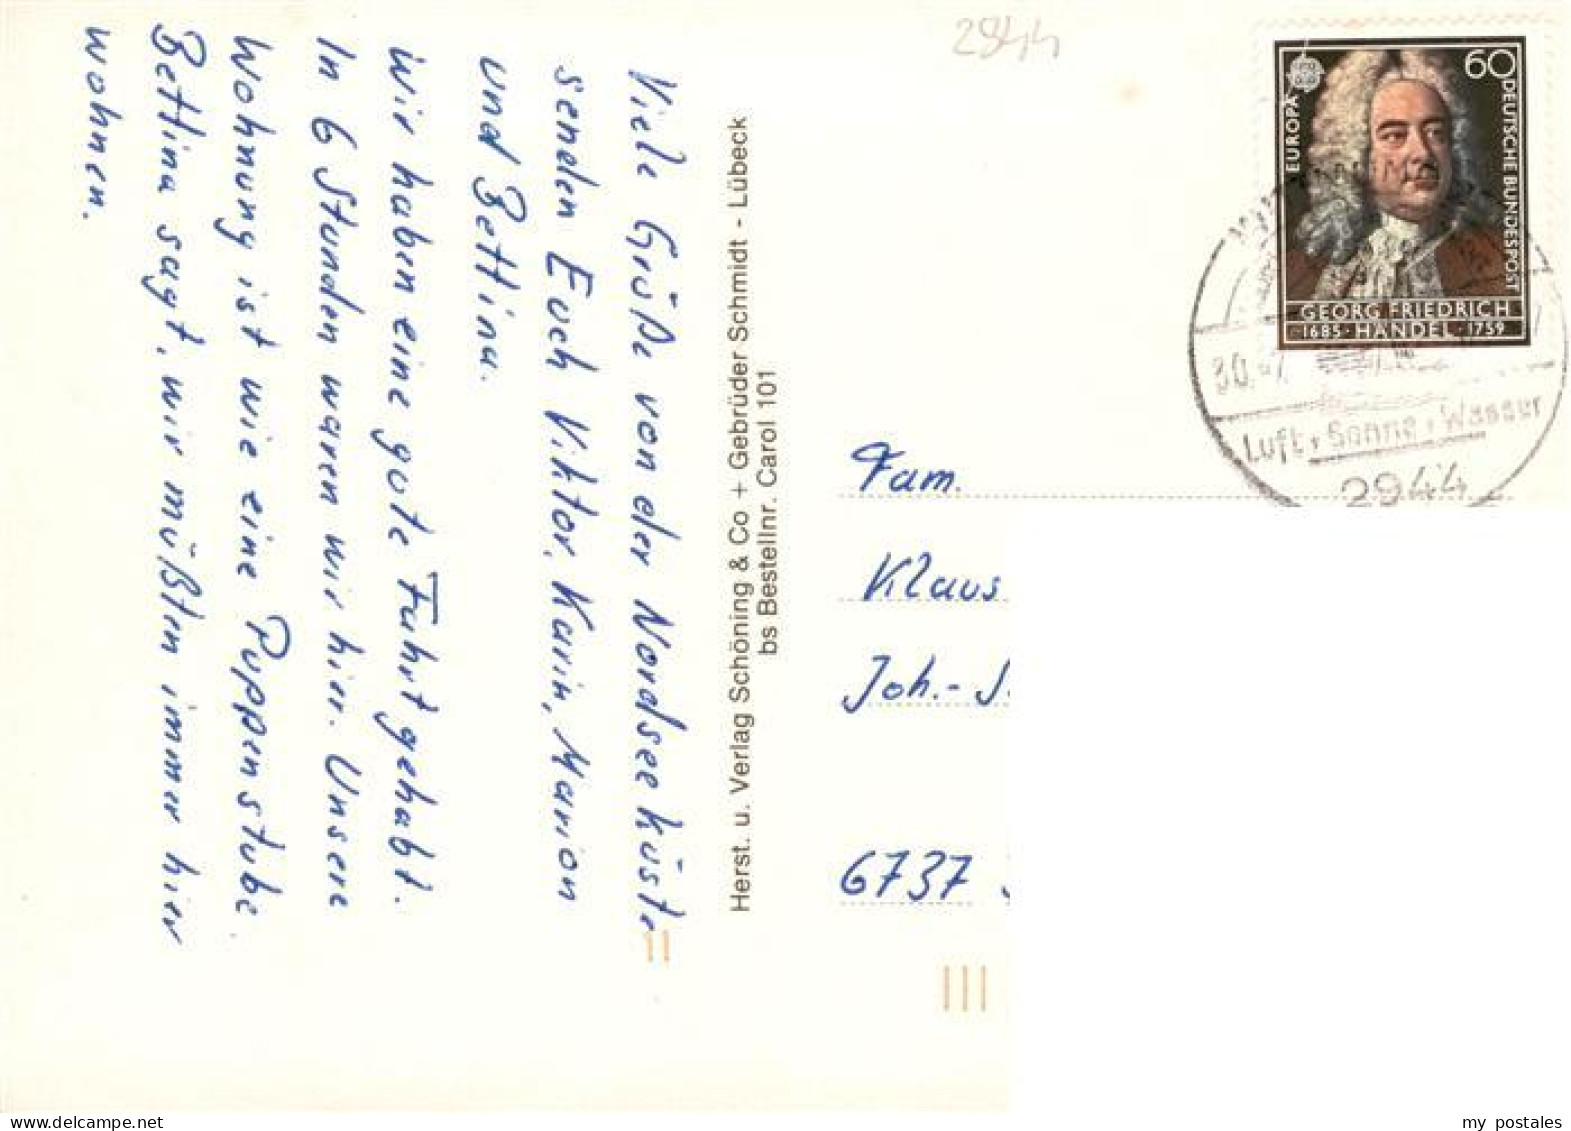 Viele Grüße von der Nordseeküste
senden Euch Viktor, Karin, Marion
und Bettina.
Wir haben eine gute Fahrt gehabt.
In 6 Stunden waren wir hier. Unsere
Wohnung ist wie eine Puppenstube.
Bettina sagt, wir müßten immer hier
wohnen.
Herst. u. Verlag Schöning & Co + Gebrüder Schmidt - Lübeck
bs Bestellnr. Carol 101
2944
60
EUROPA
DEUTSCHE BUNDESPOST
GEORG FRIEDRICH
1685 · HÄNDEL · 1759
30.
Luft, Sonne, Wasser
2944
Fam.
Klaus
Joh.-
6737
my postales